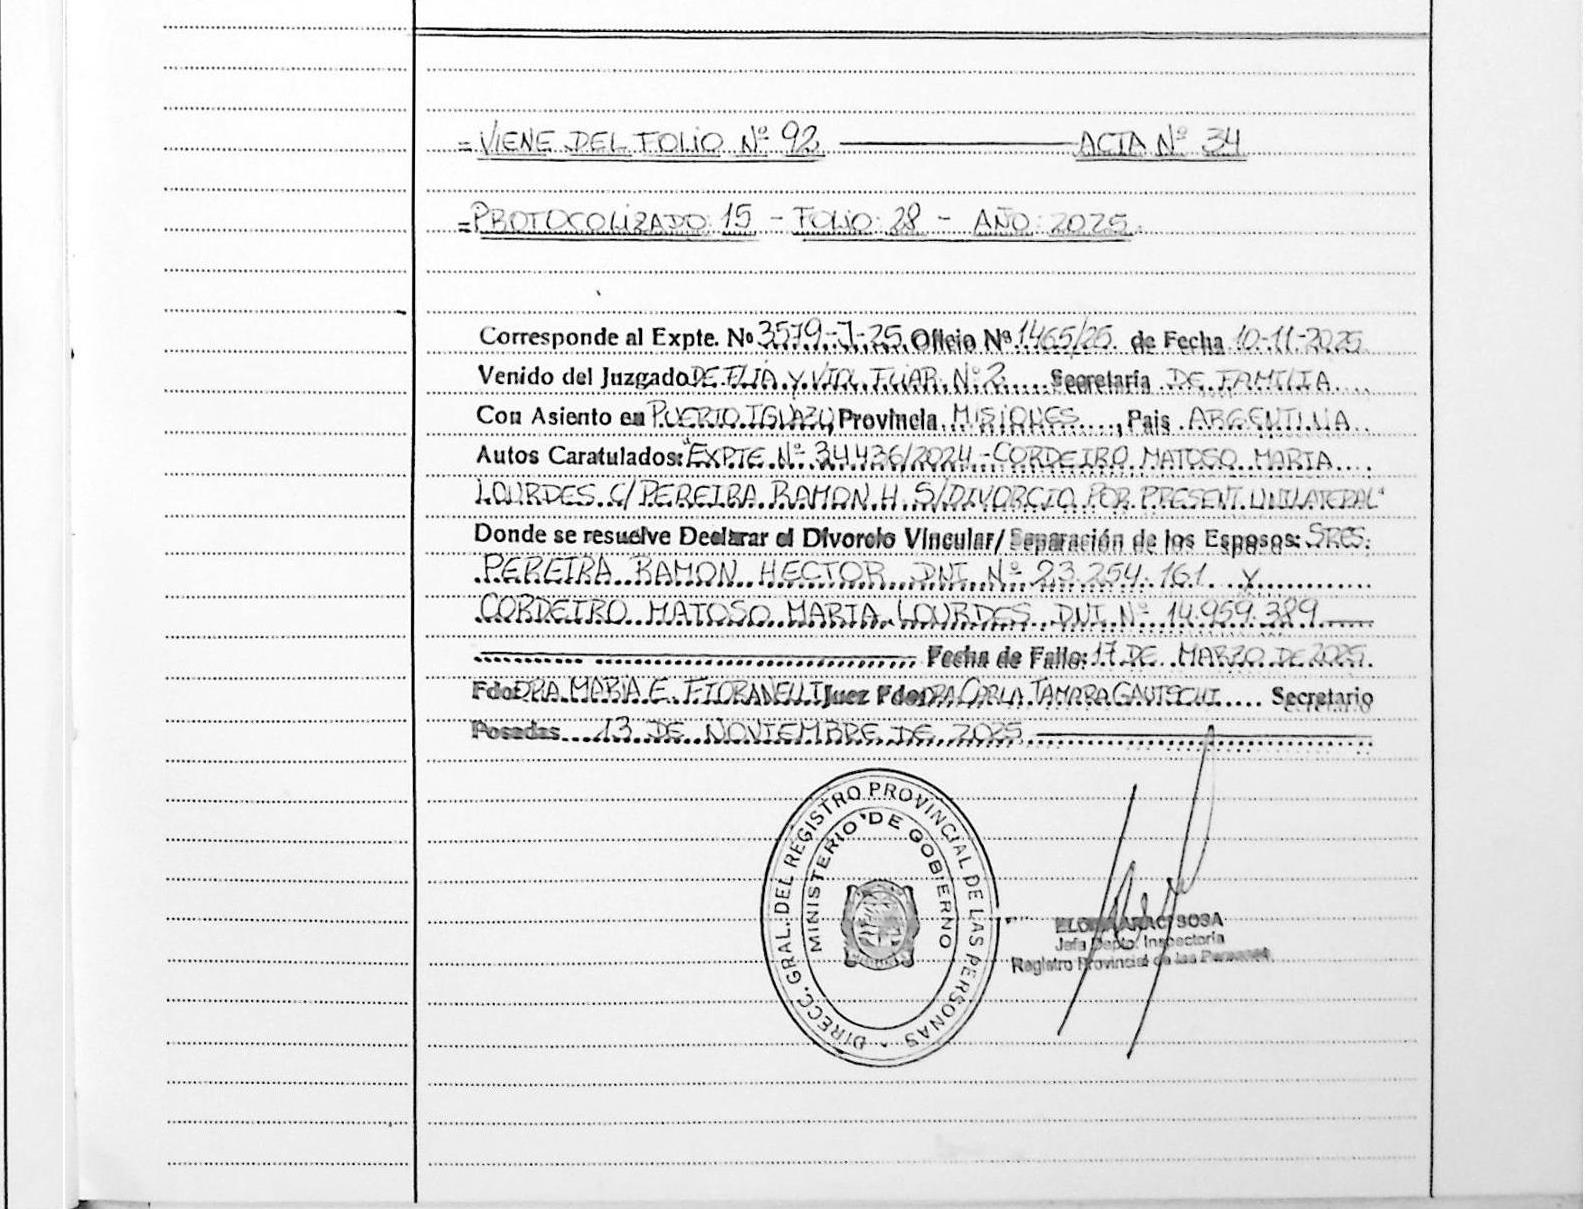 = VIENE DEL FOLIO Nº 92 ACTA Nº 34
= PROTOCOLIZADO: 15 - FOLIO: 28 - AÑO: 2025.
Corresponde al Expte. Nº 3579-J-25 Oficio Nº 1465/25 de Fecha 10-11-2025
Venido del Juzgado DE FLIA Y VIOL. FLIAR. Nº 2 Secretaría DE FAMILIA
Con Asiento en PUERTO IGUAZU, Provincia MISIONES, Pais ARGENTINA
Autos Caratulados: "EXPTE. Nº 34.436/2024 - CORDEIRO MATOSO MARIA
LOURDES C/ PEREIRA RAMON H. S/DIVORCIO POR PRESENT. UNILATERAL"
Donde se resuelve Declarar el Divorcio Vincular/ Separación de los Esposos: SRES.
PEREIRA RAMON HECTOR DNI Nº 23.254.161 Y
CORDEIRO MATOSO MARIA LOURDES DNI Nº 14.959.389
Fecha de Fallo: 17 DE MARZO DE 2025.
Fdo: DRA. MARIA E. FIORANELLI Juez Fdo: DRA CARLA TAMARA GAUTSCHI Secretario
Posadas 13 DE NOVIEMBRE DE 2025
DIRECC. GRAL. DEL REGISTRO PROVINCIAL DE LAS PERSONAS
MINISTERIO DE GOBIERNO
SOSA
Jefa Depto. Inspectoria
Registro Provincial de las Personas